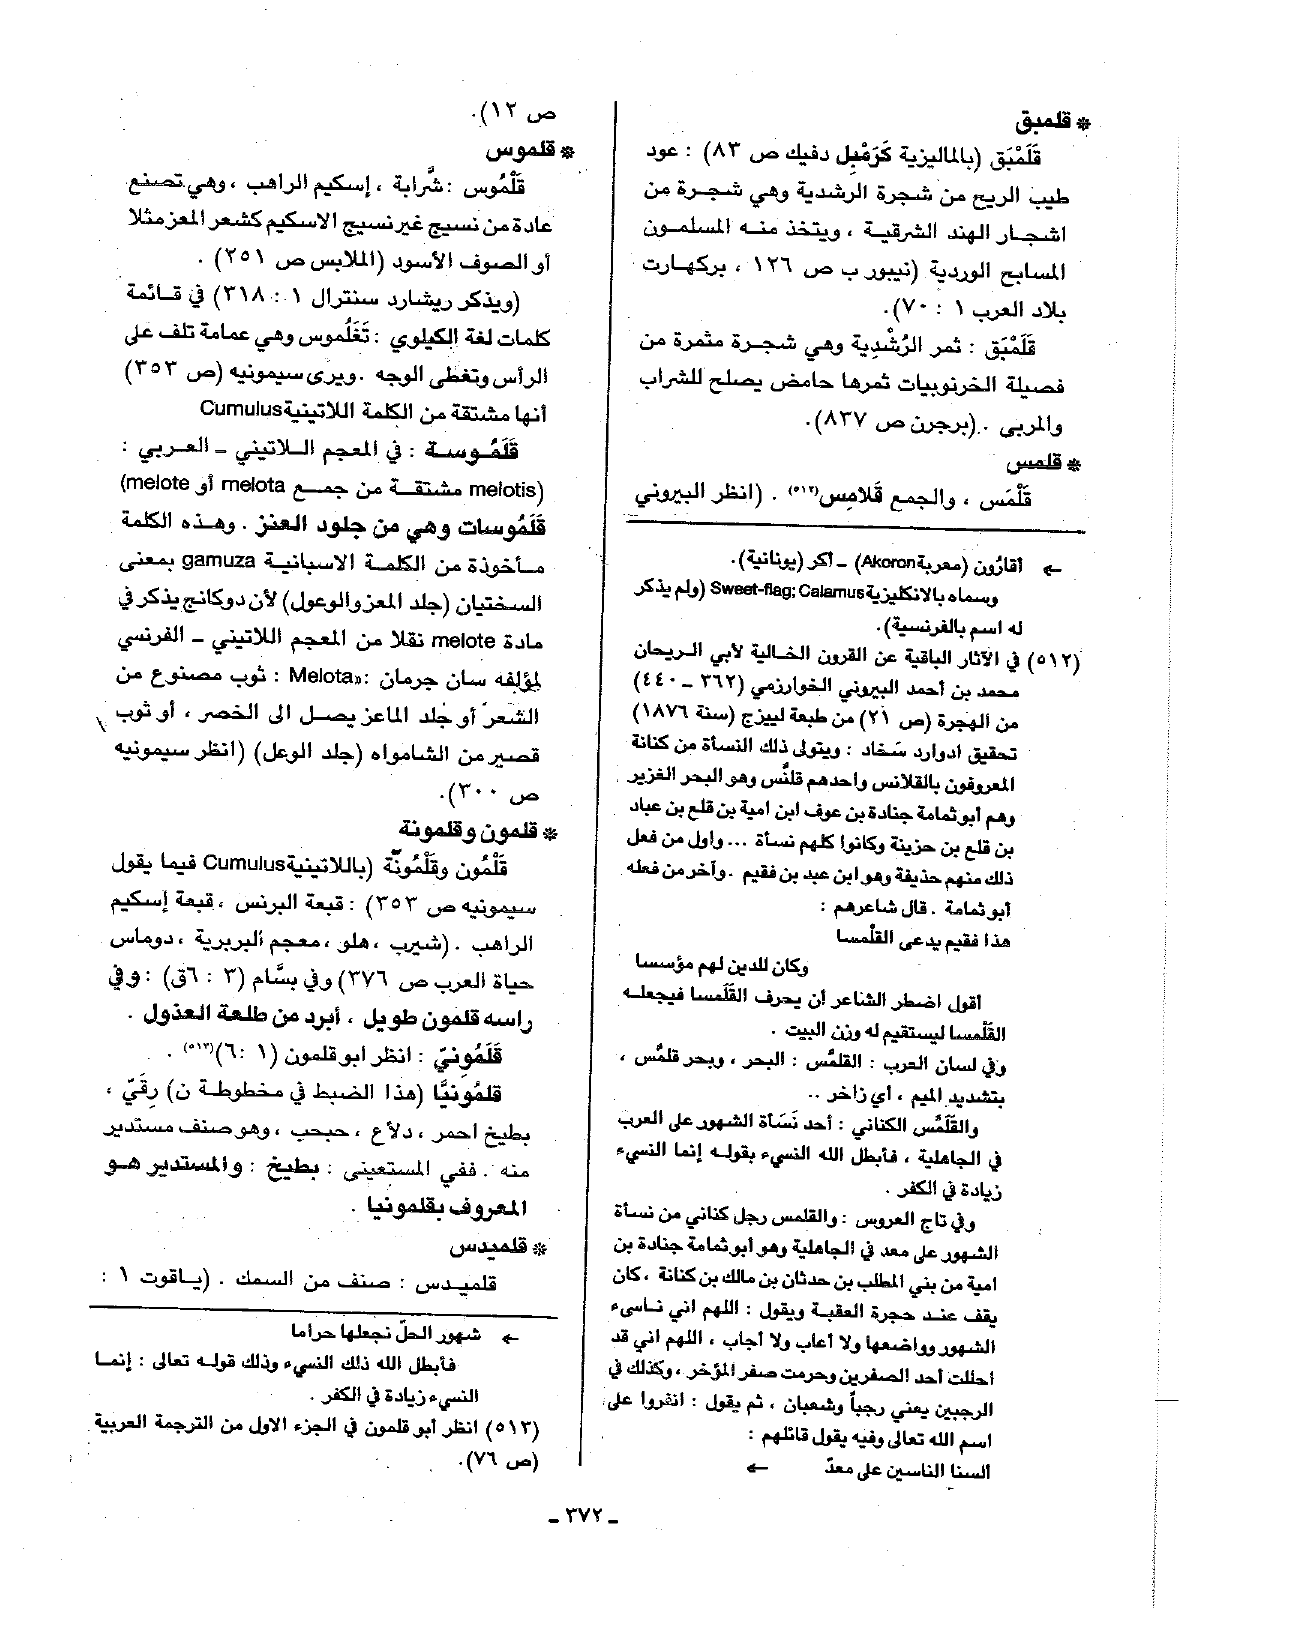 * قلمبق
قَلَمْبَق (بالماليزية كَرَمْبِل دفيك ص ٨٣) : عود
طيب الريح من شجرة الرشدية وهي شجرة من
اشجار الهند الشرقية ، ويتخذ منه المسلمون
المسابح الوردية (نيبور ب ص ١٢٦ ، بركهارت
بلاد العرب ١ : ٧٠).
قَلَمْبَق : ثمر الرُشْدِية وهي شجرة مثمرة من
فصيلة الخرنوبيات ثمرها حامض يصلح للشراب
والمربى . (برجرن ص ٨٣٧).
* قلمس
قَلْمَس ، والجمع قَلامِس(٥١٢) . (انظر البيروني
ص ١٢).
* قلموس
قَلْمُوس : شَّرابة ، إسكيم الراهب ، وهي تصنع
عادة من نسيج غير نسيج الاسكيم كشعر المعز مثلا
أو الصوف الأسود (الملابس ص ٢٥١) .
(ويذكر ريشارد سنترال ١ : ٣١٨) في قائمة
كلمات لغة الكيلوي : تَغَلْموس وهي عمامة تلف على
الرأس وتغطى الوجه . ويرى سيمونيه (ص ٣٥٣)
أنها مشتقة من الكلمة اللاتينية Cumulus
قَلَمُوسة : في المعجم اللاتيني ـ العربي :
(melotis مشتقة من جمع melota أو melote)
قَلَمُوسات وهي من جلود العنز . وهذه الكلمة
مأخوذة من الكلمة الاسبانية gamuza بمعنى
السختيان (جلد المعز والوعول) لأن دوكانج يذكر في
مادة melote نقلا من المعجم اللاتيني ـ الفرنسي
لمؤلفه سان جرمان : «Melota : ثوب مصنوع من
الشعر أو جلد الماعز يصل الى الخصر ، أو ثوب
قصير من الشامواه (جلد الوعل) (انظر سيمونيه
ص ٣٠٠).
* قلمون وقلمونة
قَلْمُون وقَلْمُونّة (باللاتينية Cumulus فيما يقول
سيمونيه ص ٣٥٣) : قبعة البرنس ، قبعة إسكيم
الراهب . (شيرب ، هلو ، معجم البربرية ، دوماس
حياة العرب ص ٣٧٦) وفي بسَّام (٣ : ٦ق) : وفي
راسه قلمون طويل ، أبرد من طلعة العذول .
قَلَمُونيّ : انظر ابو قلمون (١ : ٦)(٥١٣) .
قلمُونيًّا (هذا الضبط في مخطوطة ن) رِقّيّ ،
بطيخ احمر ، دلاع ، حبحب ، وهو صنف مستدير
منه . ففي المستعيني : بطيخ : والمستدير هو
المعروف بقلمونيا .
* قلميدس
قلميدس : صنف من السمك . (ياقوت ١ :
← أقارُون (معربة Akoron) ـ أكر (يونانية).
وسماه بالانكليزية Sweet-flag; Calamus (ولم يذكر
له اسم بالفرنسية).
(٥١٢) في الآثار الباقية عن القرون الخالية لأبي الريحان
محمد بن أحمد البيروني الخوارزمي (٣٦٢ ـ ٤٤٠)
من الهجرة (ص ٢١) من طبعة لييزج (سنة ١٨٧٦)
تحقيق ادوارد سَخاد : ويتولى ذلك النسأة من كنانة
المعروفون بالقلانس واحدهم قلنَّس وهو البحر الغزير
وهم أبو ثمامة جنادة بن عوف ابن امية بن قلع بن عباد
بن قلع بن حزينة وكانوا كلهم نسأة ... واول من فعل
ذلك منهم حذيفة وهو ابن عبد بن فقيم . وآخر من فعله
أبو ثمامة . قال شاعرهم :
هذا فقيم يدعى القلْمسا
وكان للدين لهم مؤسسا
اقول اضطر الشاعر أن يحرف القَلَمسا فيجعله
القَلْمسا ليستقيم له وزن البيت .
وفي لسان العرب : القلمَّس : البحر ، وبحر قلمَّس ،
بتشديد الميم ، أي زاخر ..
والقَلَمَّس الكناني : أحد نَسَأة الشهور على العرب
في الجاهلية ، فأبطل الله النسيء بقوله إنما النسيء
زيادة في الكفر .
وفي تاج العروس : والقلمس رجل كناني من نسأة
الشهور على معد في الجاهلية وهو أبو ثمامة جنادة بن
امية من بني المطلب بن حدثان بن مالك بن كنانة ، كان
يقف عند حجرة العقبة ويقول : اللهم اني ناسيء
الشهور وواضعها ولا أعاب ولا أجاب ، اللهم اني قد
احللت أحد الصفرين وحرمت صفر المؤخر ، وكذلك في
الرجبين يعني رجباً وشعبان ، ثم يقول : انفروا على
اسم الله تعالى وفيه يقول قائلهم :
السنا الناسين على معدّ ←
← شهور الحلّ نجعلها حراما
فأبطل الله ذلك النسيء وذلك قوله تعالى : إنما
النسيء زيادة في الكفر .
(٥١٣) انظر أبو قلمون في الجزء الاول من الترجمة العربية
(ص ٧٦).
ـ ٣٧٢ ـ